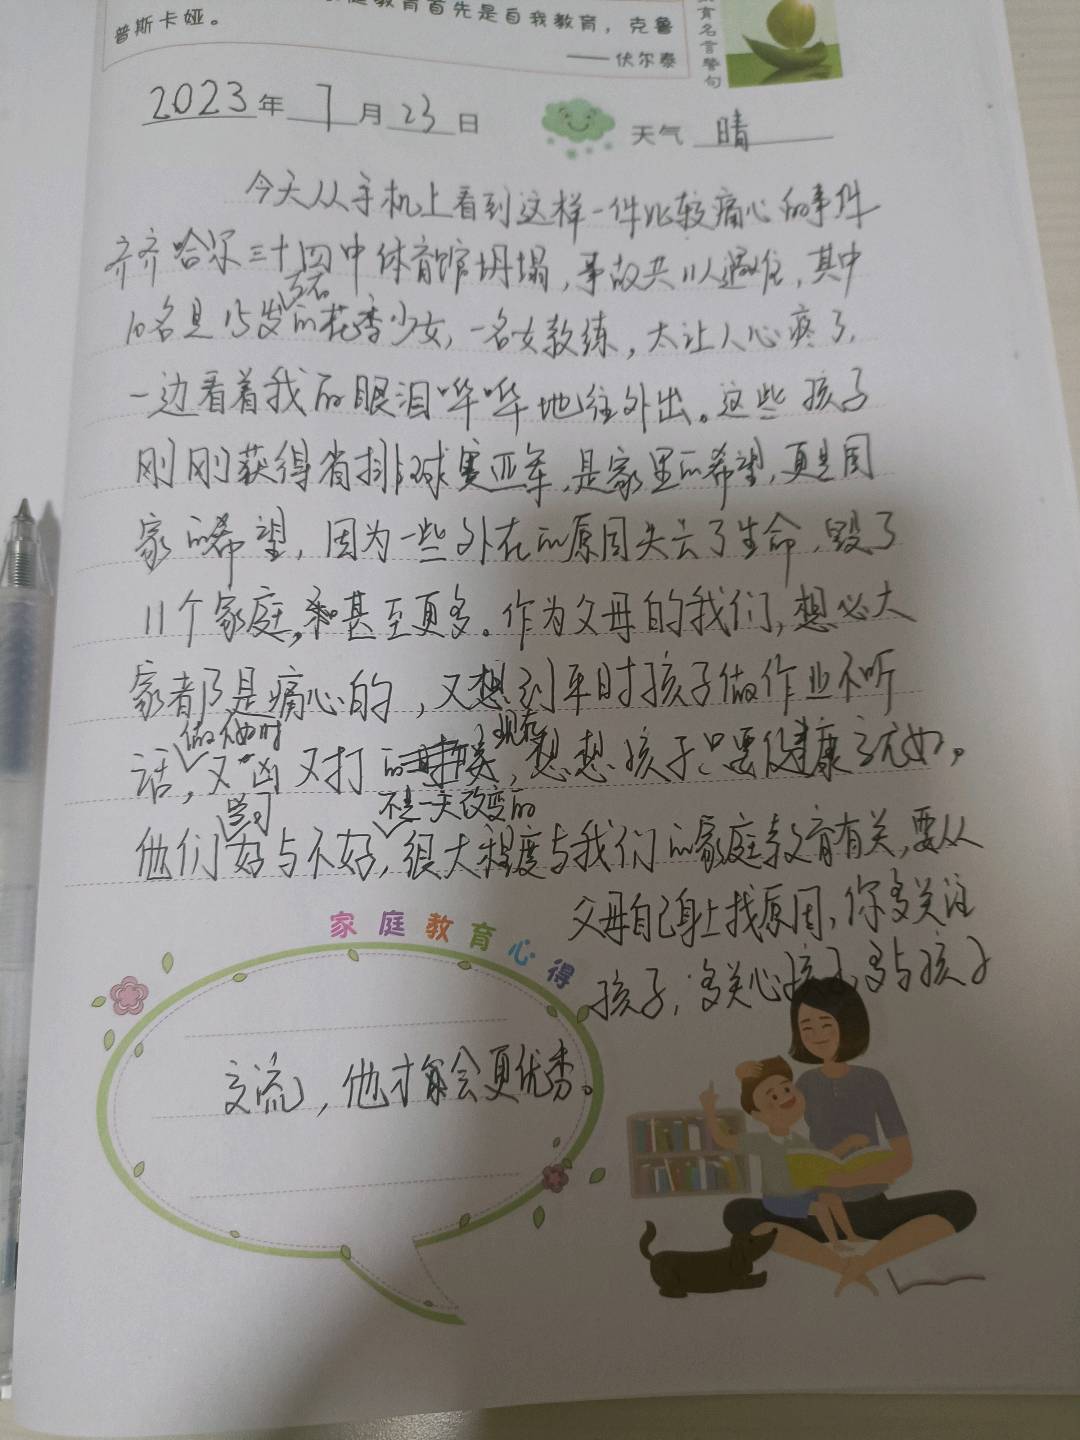 庭教育首先是自我教育，克鲁
普斯卡娅。
——伏尔泰
育名言警句
2023年7月23日
天气 晴
今天从手机上看到这样一件比较痛心的事件
齐齐哈尔三十四中体育馆坍塌，事故共11人遇难，其中
10名是15岁的花季少女，一名女教练，太让人心疼了，
一边看着我的眼泪哗哗地往外出。这些孩子
刚刚获得省排球赛亚军，是家里的希望，更是国
家的希望，因为一些外在的原因失去了生命，毁了
11个家庭，甚至更多。作为父母的我们，想必大
家都是痛心的，又想到平时孩子做作业不听
做作业时
现在
话，又凶又打的，想想孩子只要健康就好。
学习
不是一天改变的
他们好与不好，很大程度与我们的家庭教育有关，要从
父母自己身上找原因，你多关注
家庭教育心得
孩子，多关心孩子，多与孩子
交流，他才会更优秀。